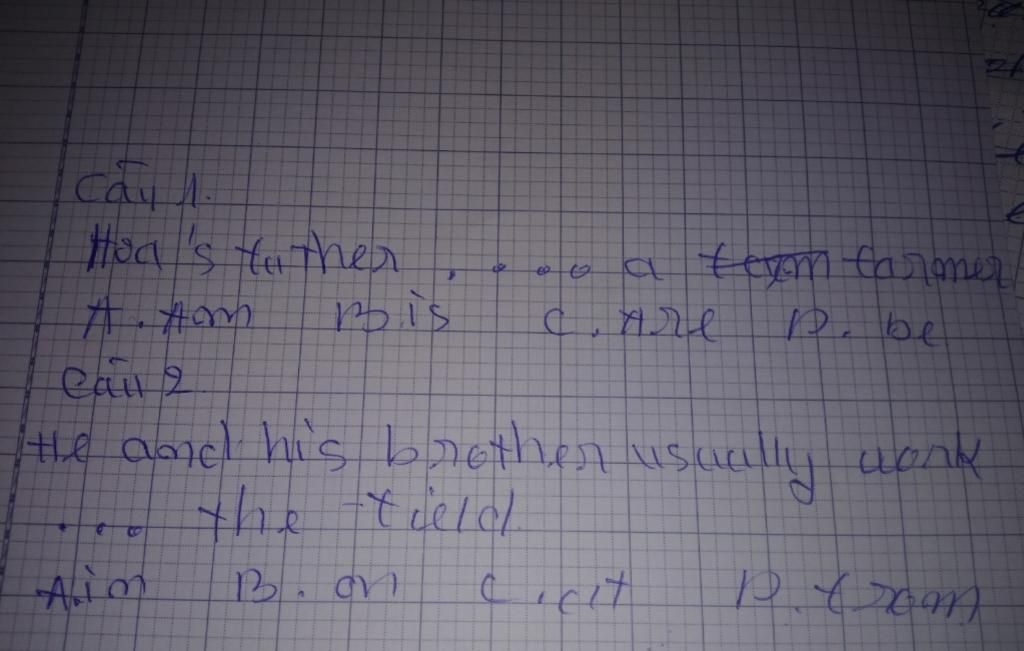 Câu 1.
Hoa's father .... a farmer
A. Am B. is C. Are D. be
Câu 2
He and his brother usually work
... the field.
A. in B. on C. at D. from